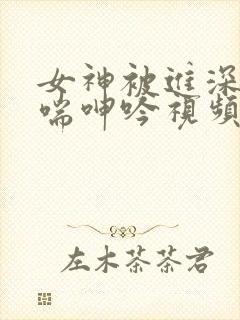 女神被进深
喘呻吟視頻
左木茶茶君